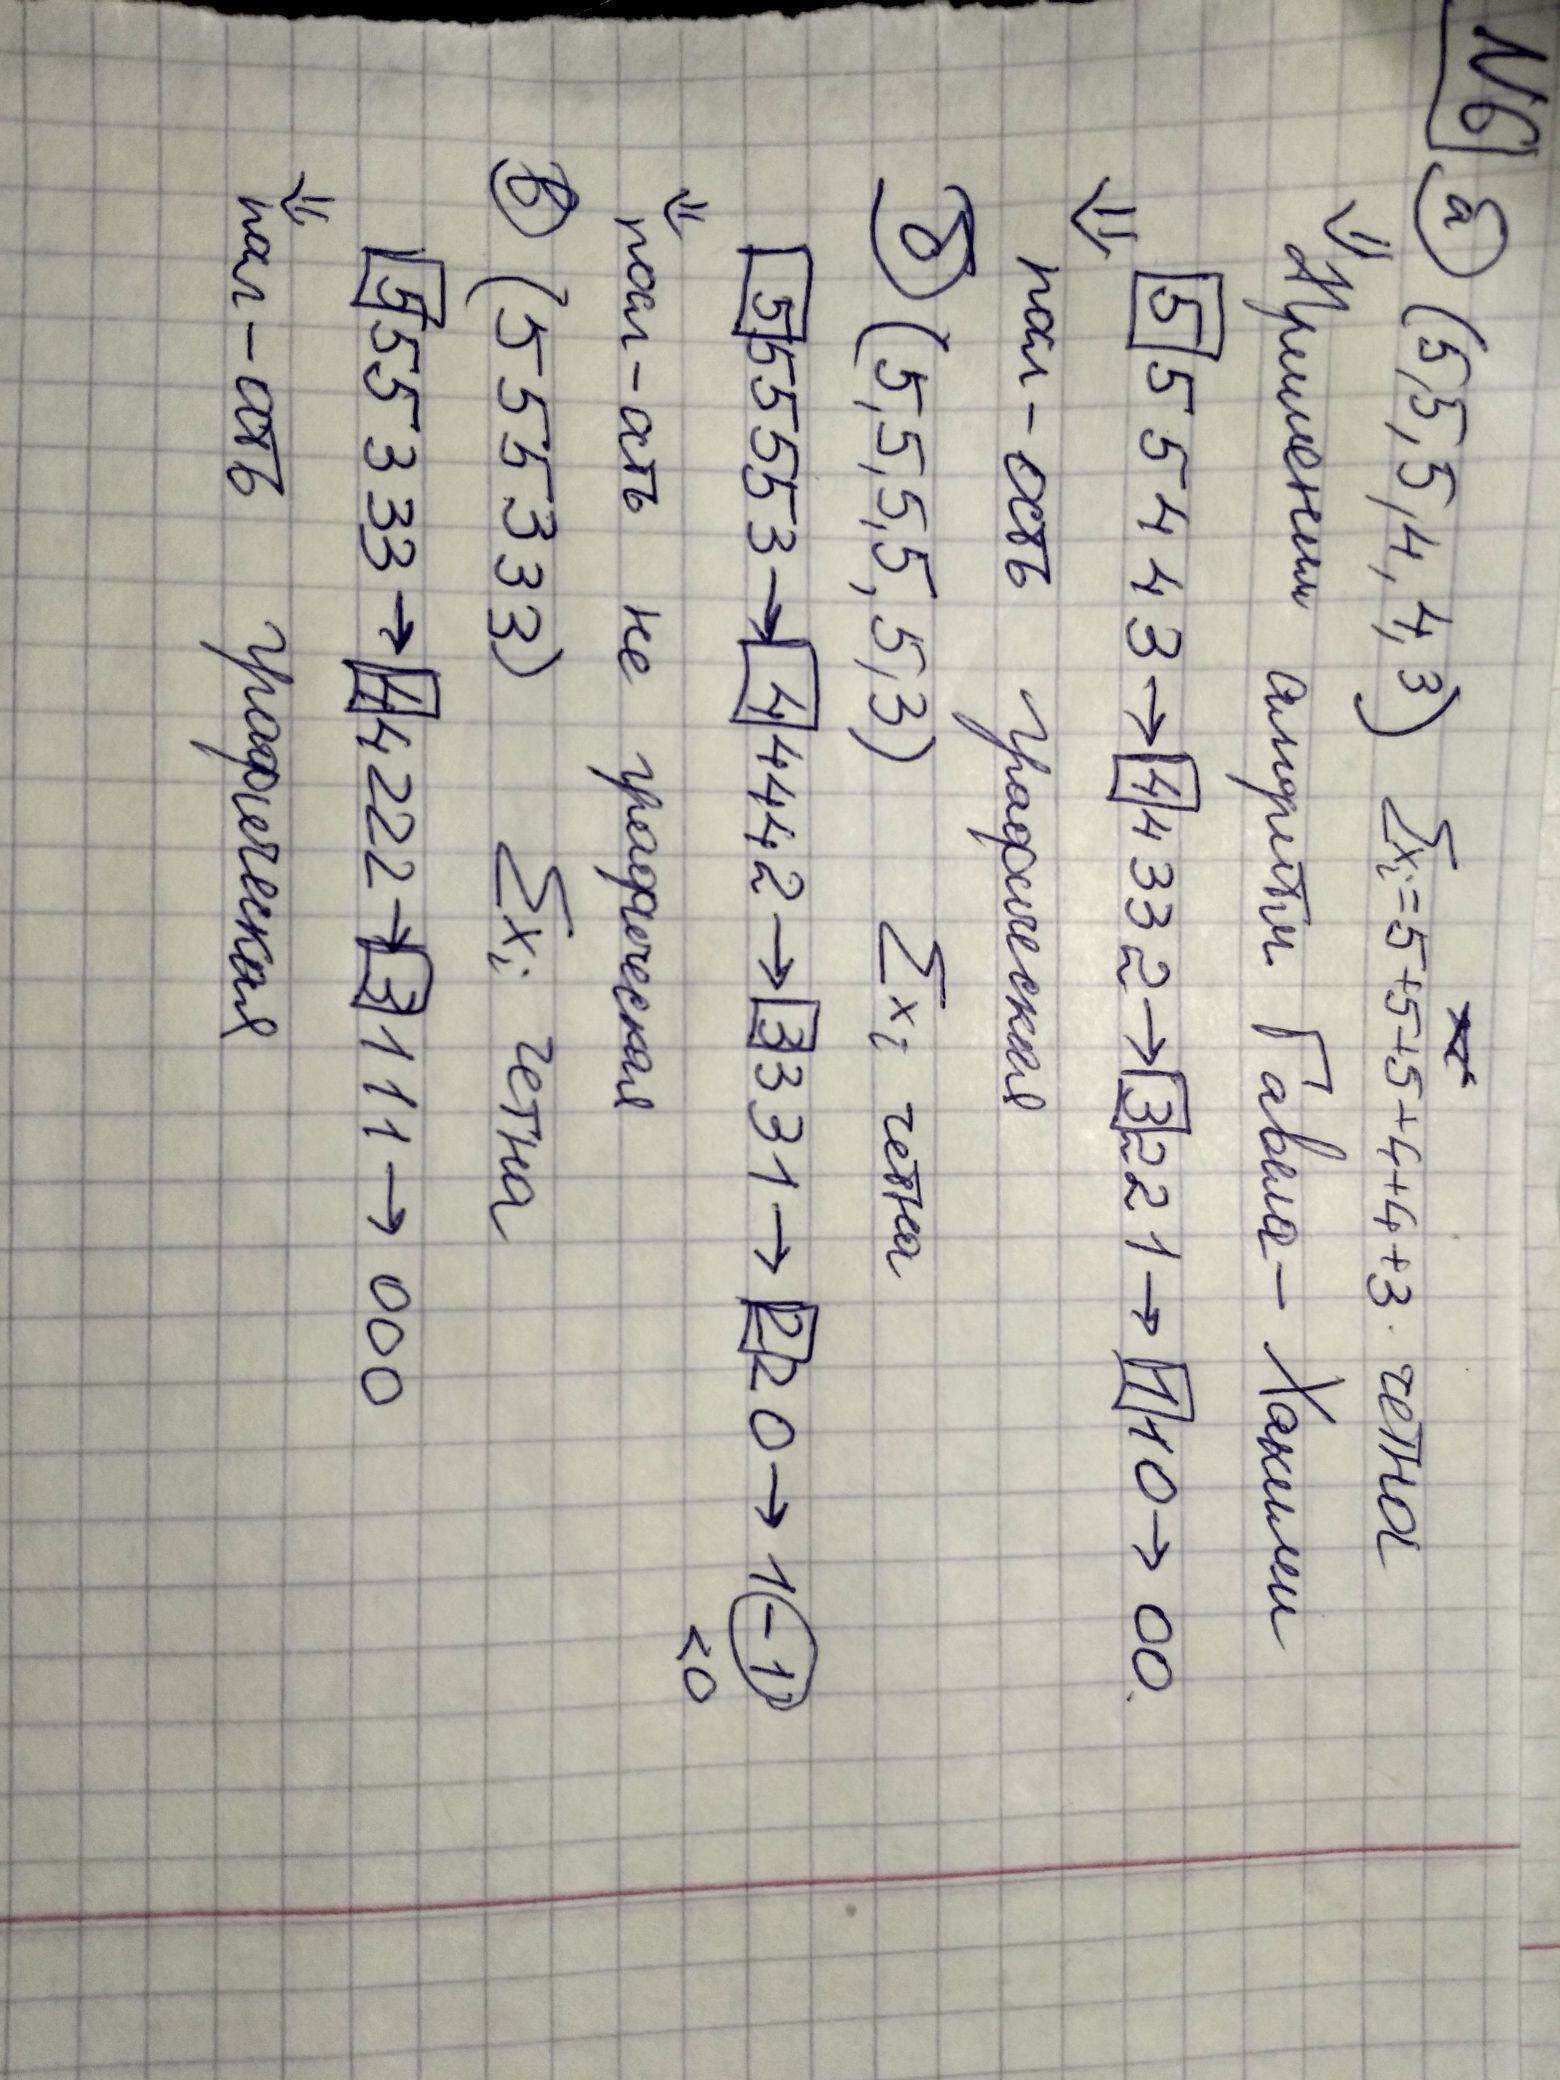 №6
а) (5,5,5,4,4,3) Σxᵢ=5+5+5+4+4+3. четна
⇓ Применим алгоритм Гавела-Хакими
5 5 5 4 4 3 → 4 4 3 3 2 → 3 2 2 1 → 1 1 0 → 0 0.
⇓ посл-сть графическая
б) (5,5,5,5,5,3) Σxᵢ четна
5 5 5 5 3 → 4 4 4 2 → 3 3 3 1 → 2 2 0 → 1 -1
<0
⇓ посл-сть не графическая
в) (5 5 5 3 3 3) Σxᵢ четна
5 5 5 3 3 3 → 4 4 2 2 2 → 3 1 1 1 → 0 0 0
⇓ посл-сть графическая